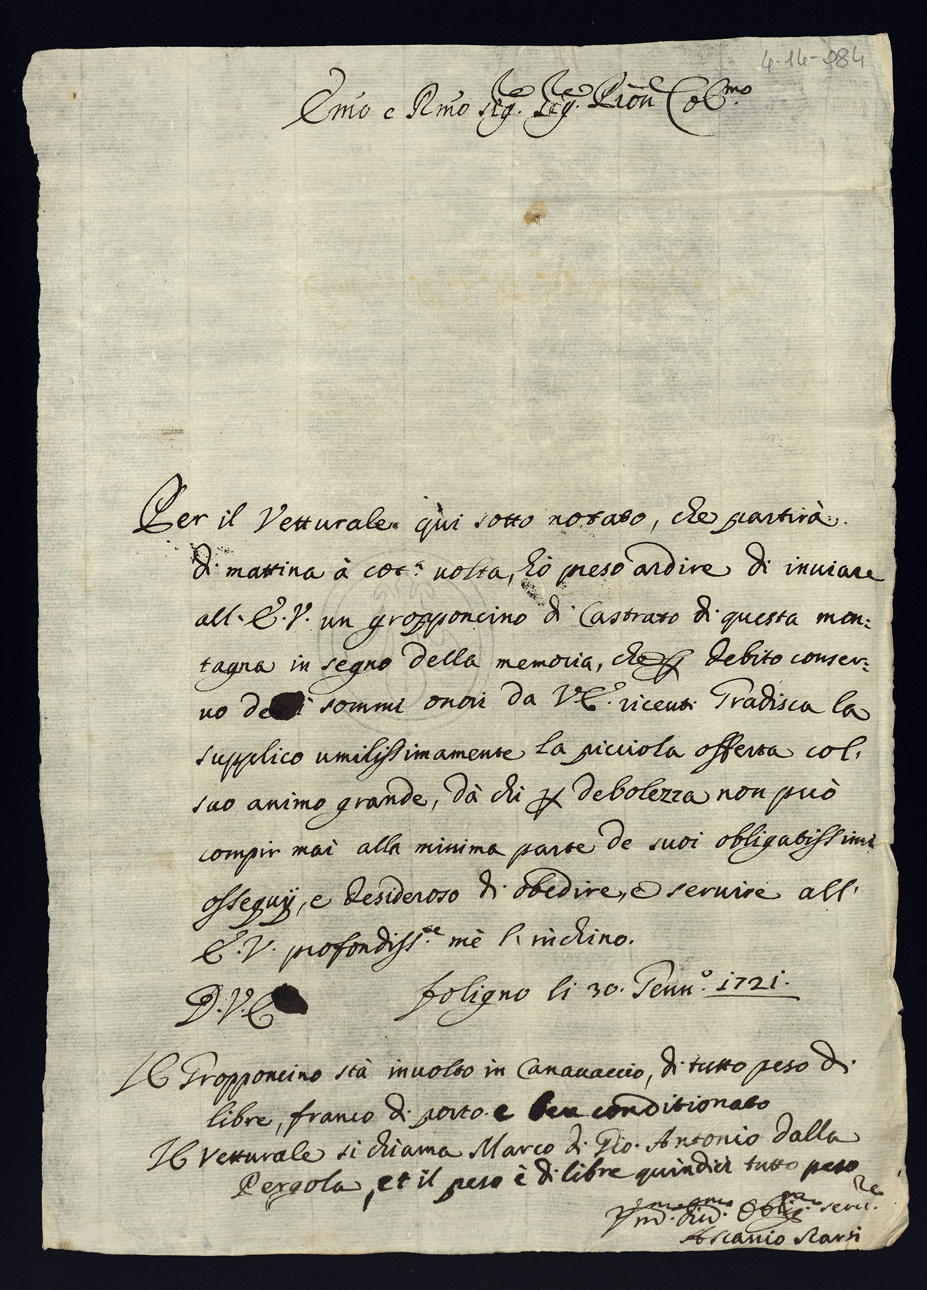 4-14-984
Emo e Rmo Sig.re Sig.re Pron Colmo
Per il Vetturale quì sotto notato, che partirà
di mattina à cot.a uolta, hò preso ardire di inuiare
all'E.V. un gropponcino di Castrato di questa mon:
tagna in segno della memoria, che per debito conser:
uo de i sommi onori da V.E. riceuti Gradisca la
supplico umilissimamente la picciola offerta col
suo animo grande, dà chi per debolezza non può
compir mai alla minima parte de suoi obligatissimi
ossequÿ, e desideroso di obedire, e seruire all'
E.V. profondiss.te mè l'inchino.
D.V.E. Foligno li 30. Genn.o 1721.
Il Gropponcino stà inuolto in Canauaccio, di tutto peso di
libre, franco di porto e ben conditionato
Il Vetturale si chiama Marco di Gio. Antonio dalla
Pergola, et il peso è di libre quindici tutto peso
Vm.mo Diu.mo Oblig.mo seru.re
Ascanio